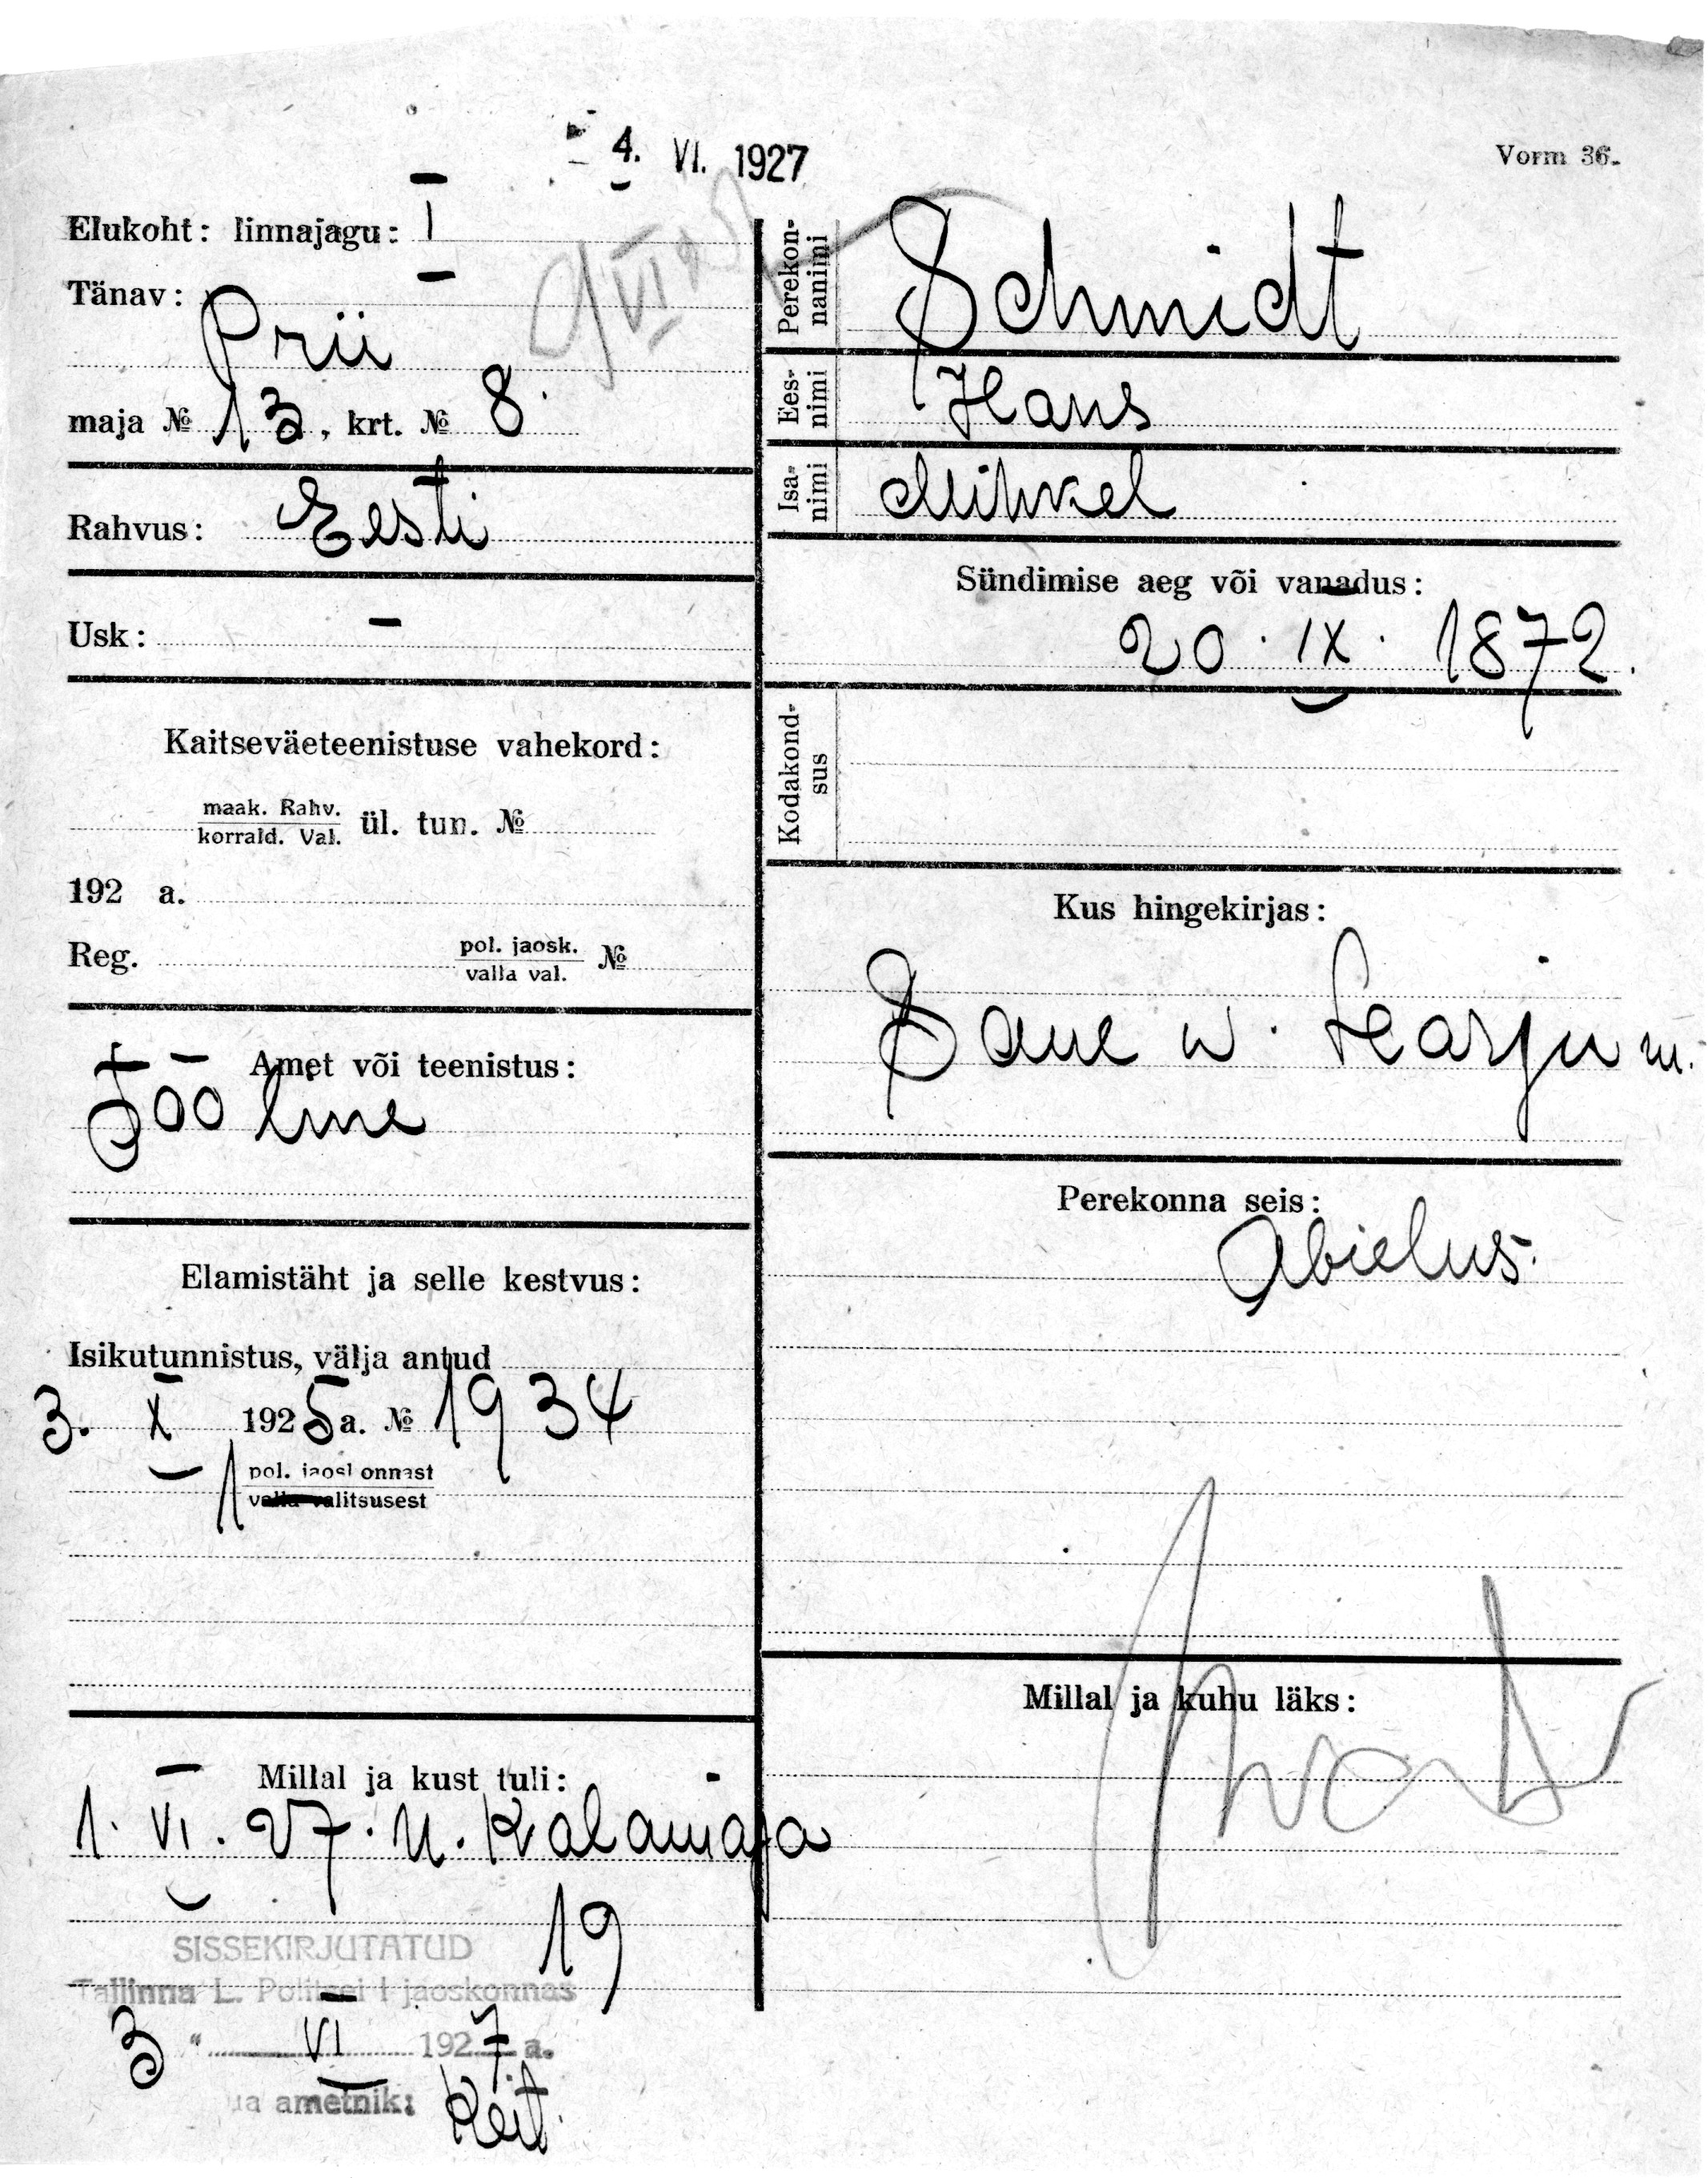 4. VI. 1927
Vorm 36.
Elukoht: linnajagu: I
Tänav:
Prii
maja № 13, krt. № 8.
Rahvus: Eesti
Usk: —
Kaitseväeteenistuse vahekord:
maak. Rahv.
korrald. Val. ül. tun. №
192 a.
Reg. pol. jaosk. №
valla val.
Amet või teenistus:
Tööline
Elamistäht ja selle kestvus:
Isikutunnistus, välja antud
3. X 1925 a. № 1934
1 pol. jaoskonnast
valla valitsusest
Millal ja kust tuli:
1. VI. 27. U. Kalamaja
19
SISSEKIRJUTATUD
Tallinna L. Politsei I jaoskonnas
3 " VI 1927 a.
ametnik: Reit
Perekon-
nanimi Schmidt
Ees-
nimi Hans
Isa-
nimi Mihkel
Sündimise aeg või vanadus:
20. IX. 1872.
Kodakond-
sus
Kus hingekirjas:
Saue w. Harju m.
Perekonna seis:
Abielus.
Millal ja kuhu läks: